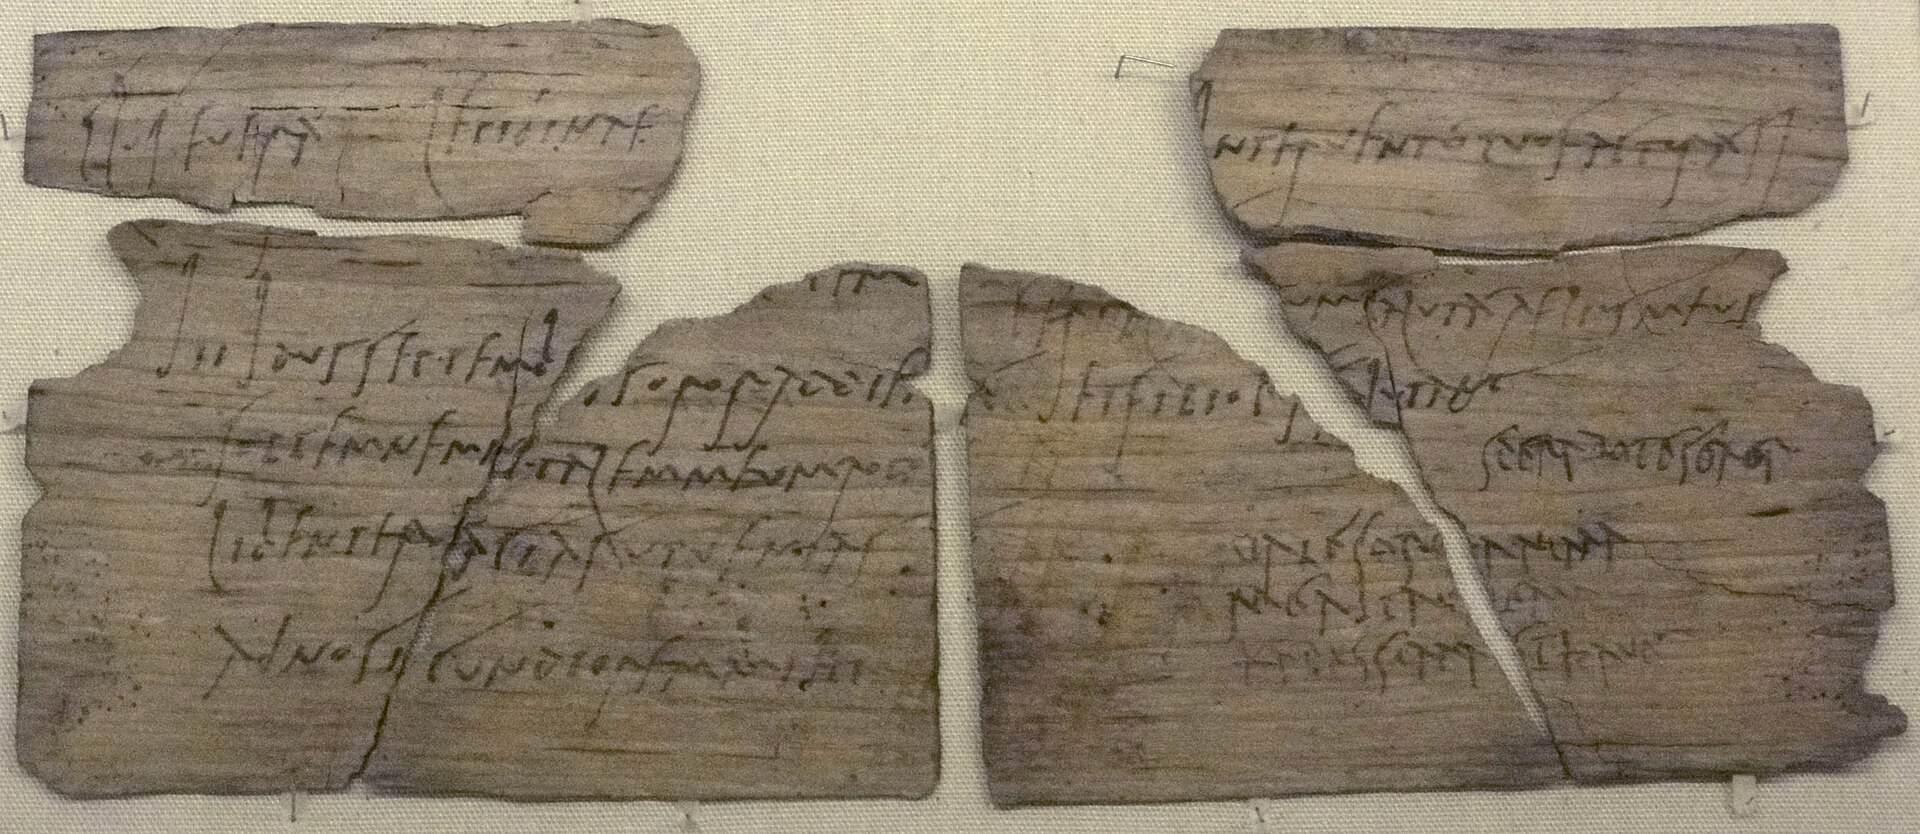 Cl Seuera Lepidinae
iii Idus Septembr s soror ad diem
sollemnem natalem meum rogo
libenter facias ut uenias
ad nos iucundiorem mihi
interuentu tuo factura si
Cerial uum saluta Aelius meus
et filiolus salutant
sperabo te soror
uale soror anima
mea ita ualeam
karissima et haue